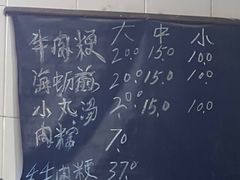 大 中 小
牛肉粳 200 150 100
海蚋湯 200 150 100
小丸汤 200 150 100
肉粽 70
牛肉粳 370